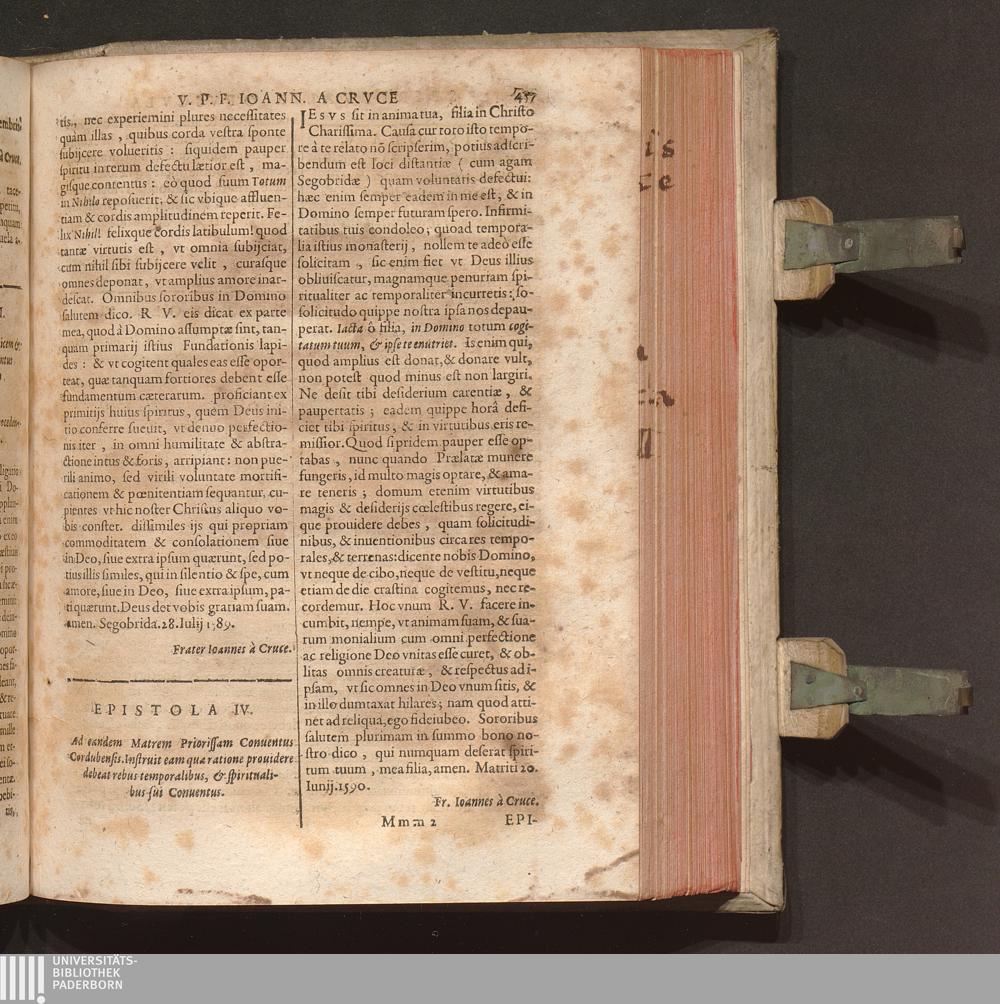 V. P. F. IOANN. A CRVCE
457
tis, nec experiemini plures necessitates
quàm illas, quibus corda vestra sponte
subijcere volueritis: siquidem pauper
spiritu in rerum defectu lætior est, ma-
gisque contentus: eò quod suum Totum
in Nihilo reposuerit; & sic vbique affluen-
tiam & cordis amplitudinem reperit. Fe-
lix Nihil! felixque cordis latibulum! quod
tantæ virtutis est, vt omnia subijciat,
cùm nihil sibi subijcere velit, curasque
omnes deponat, vt amplius amore inar-
descat. Omnibus sororibus in Domino
salutem dico. R V. eis dicat ex parte
mea, quod à Domino assumptæ sint, tan-
quam primarij istius Fundationis lapi-
des: & vt cogitent quales eas esse opor-
teat, quæ tanquam fortiores debent esse
fundamentum cæterarum. proficiant ex
primitijs huius spiritus, quem Deus ini-
tio conferre sueuit, vt denuo perfectio-
nis iter, in omni humilitate & abstra-
ctione intus & foris, arripiant: non pue-
rili animo, sed virili voluntate mortifi-
cationem & pœnitentiam sequantur, cu-
pientes vt hic noster Christus aliquo vo-
bis constet. dissimiles ijs qui propriam
commoditatem & consolationem siue
in Deo, siue extra ipsum quærunt, sed po-
tius illis similes, qui in silentio & spe, cum
amore, siue in Deo, siue extra ipsum, pa-
ti quærunt. Deus det vobis gratiam suam.
amen. Segobrida. 28. Iulij 1589.
Frater Ioannes à Cruce.
EPISTOLA IV.
Ad eandem Matrem Priorissam Conuentus
Cordubensis. Instruit eam qua ratione prouidere
debeat rebus temporalibus, & spirituali-
bus sui Conuentus.
IESVS sit in anima tua, filia in Christo
Charissima. Causa cur toto isto tempo-
re à te relato nō scripserim, potius adscri-
bendum est loci distantiæ ( cum agam
Segobridæ ) quam voluntatis defectui:
hæc enim semper eadem in me est, & in
Domino semper futuram spero. Infirmi-
tatibus tuis condoleo; quoad tempora-
lia istius monasterij, nollem te adeò esse
solicitam, sic enim fiet vt Deus illius
obliuiscatur, magnamque penuriam spi-
ritualiter ac temporaliter incurretis: so-
solicitudo quippe nostra ipsa nos depau-
perat. Iacta ô filia, in Domino totum cogi-
tatum tuum, & ipse te enutriet. Is enim qui,
quod amplius est donat, & donare vult,
non potest quod minus est non largiri.
Ne desit tibi desiderium carentiæ, &
paupertatis; eadem quippe horâ defi-
ciet tibi spiritus, & in virtutibus eris re-
missior. Quod si pridem pauper esse op-
tabas, nunc quando Prælatæ munere
fungeris, id multo magis optare, & ama-
re teneris; domum etenim virtutibus
magis & desiderijs cœlestibus regere, ei-
que prouidere debes, quam solicitudi-
nibus, & inuentionibus circa res tempo-
rales, & terrenas: dicente nobis Domino,
vt neque de cibo, neque de vestitu, neque
etiam de die crastina cogitemus, nec re-
cordemur. Hoc vnum R. V. facere in-
cumbit, nempe, vt animam suam, & sua-
rum monialium cum omni perfectione
ac religione Deo vnitas esse curet, & ob-
litas omnis creaturæ, & respectus ad i-
psam, vt sic omnes in Deo vnum sitis, &
in illo dumtaxat hilares; nam quod atti-
net ad reliqua, ego fideiubeo. Sororibus
salutem plurimam in summo bono no-
stro dico, qui numquam deserat spiri-
tum tuum, mea filia, amen. Matriti 20.
Iunij. 1590.
Fr. Ioannes à Cruce.
Mmm 2
EPI-
UNIVERSITÄTS-
BIBLIOTHEK
PADERBORN